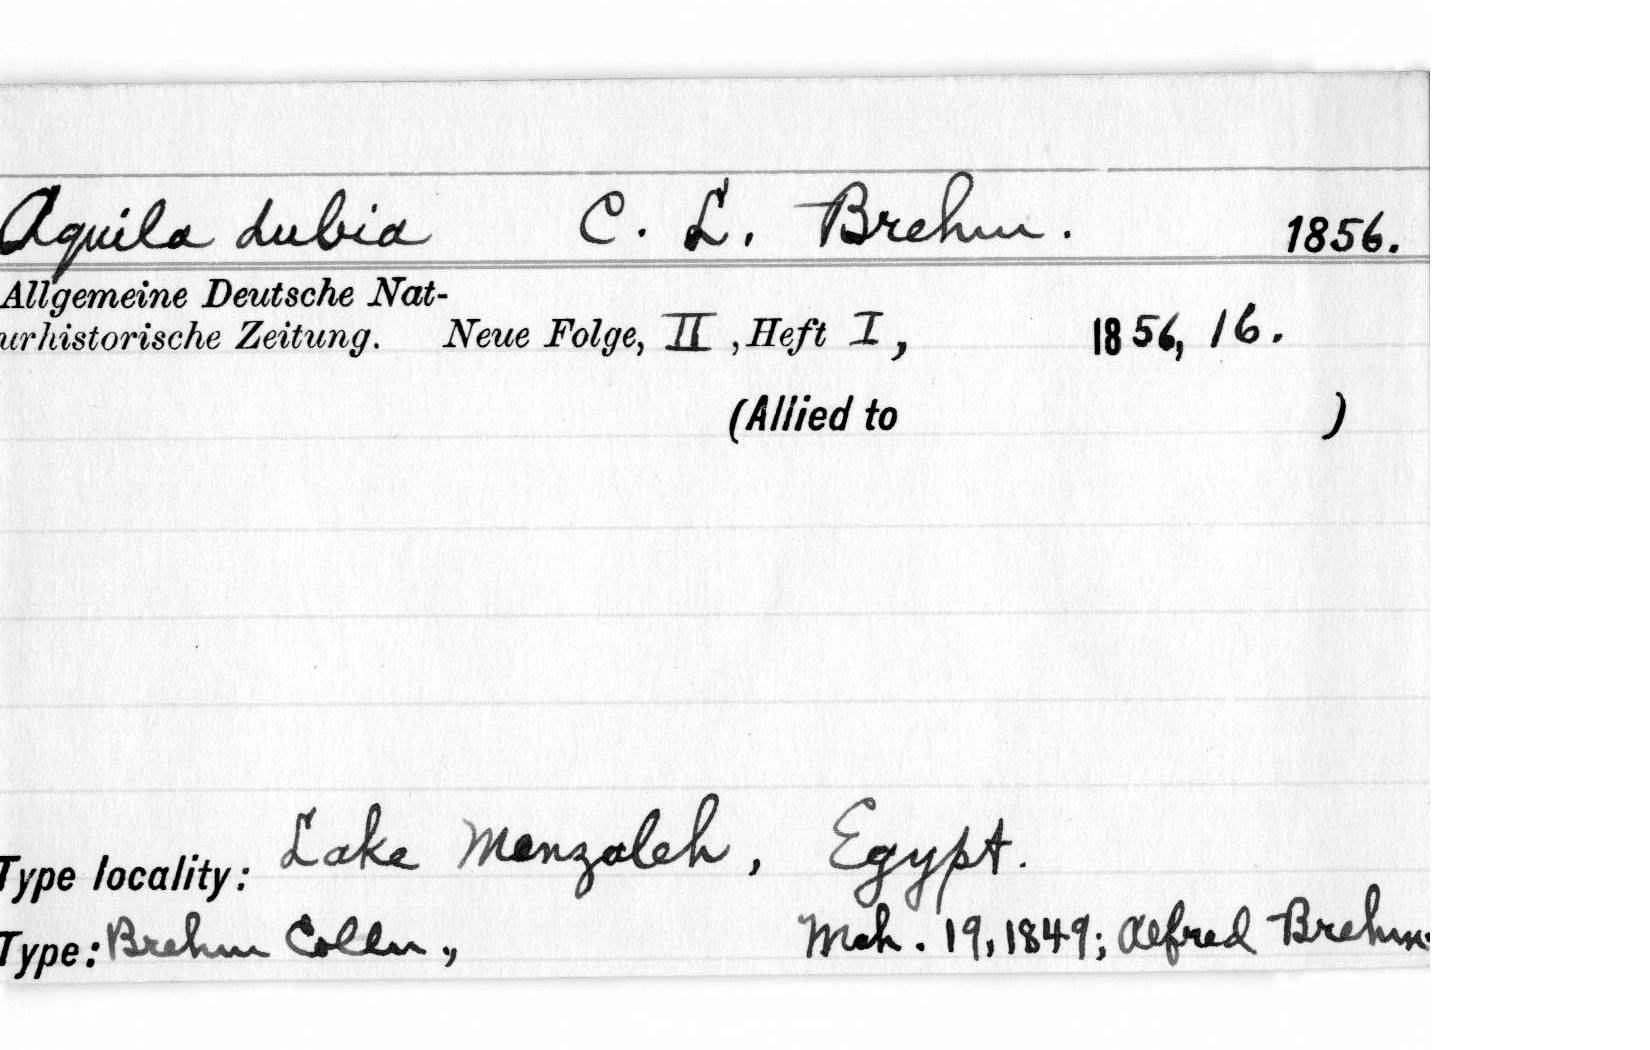 Aquila dubia C. L. Brehm. 1856.
Allgemeine Deutsche Nat-
urhistorische Zeitung. Neue Folge, II, Heft I, 1856, 16.
(Allied to )
Type locality: Lake Menzaleh, Egypt.
Type: Brehm Colln., Mch. 19, 1849; Alfred Brehm.